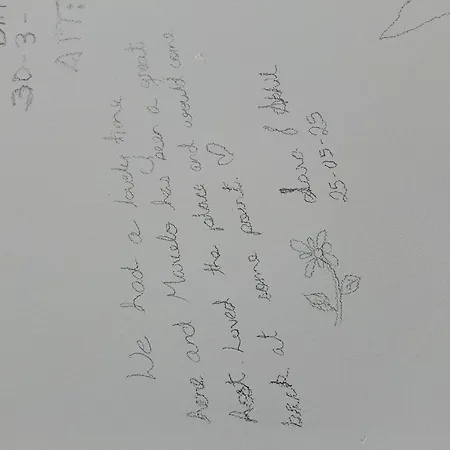 30-3-
We had a lovely time
here and Marcelo has been a great
host. Loved the place and would come
back at some point.
Sara & Sahil
25-05-25